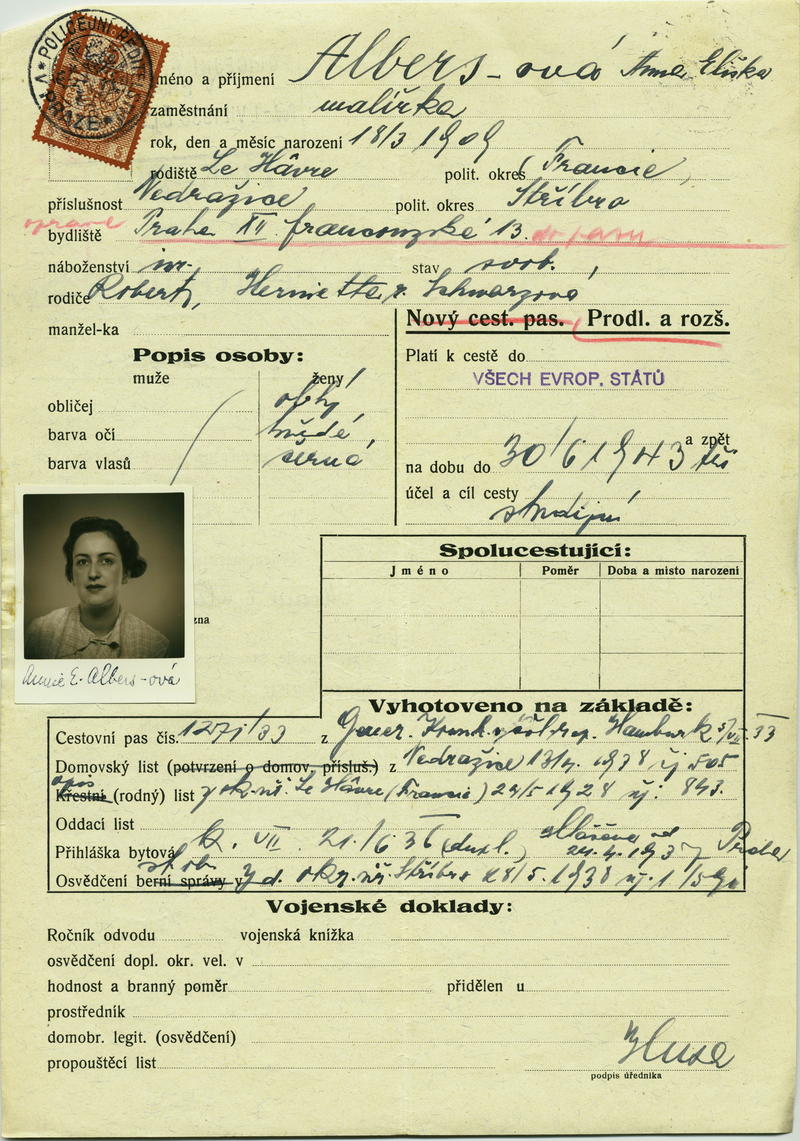 POLICEJNÍ ŘEDIT
V PRAZE
Jméno a příjmení Albers-ová Anna Eliška
zaměstnání malířka
rok, den a měsíc narození 18/3 1909
rodiště Le Hâvre polit. okres Francie,
příslušnost Nedražice polit. okres Stříbro
bydliště Praha XII francouzské 13.
náboženství stav svob.
rodiče Robert, Hermietta r. Schwarzová
manžel-ka
Nový cest. pas. Prodl. a rozš.
Popis osoby:
muže ženy
obličej oblý
barva očí hnědé
barva vlasů černá
Platí k cestě do
VŠECH EVROP. STÁTŮ
a zpět
na dobu do 30/6 1943
účel a cíl cesty
studijní
zna
Annie E. Albers-ová
Spolucestující:
Jméno Poměr Doba a místo narození
Vyhotoveno na základě:
Cestovní pas čís. 1271/33 z Gener. Hamburk 33
Domovský list (potvrzení o domov. přísluš.) z Nedražice 1938 čj 505
opis
Křestní (rodný) list z ok. úř. Le Hâvre (Francie) 24/5 1928 čj: 843.
Oddací list
Přihláška bytová k. VII. 21/6 36 (dupl.) 24.4.1937 Praha
Osvědčení berní správy v okr. úř. Stříbro 28/5. 1938
Vojenské doklady:
Ročník odvodu vojenská knížka
osvědčení dopl. okr. vel. v
hodnost a branný poměr přidělen u
prostředník
domobr. legit. (osvědčení)
propouštěcí list
podpis úředníka